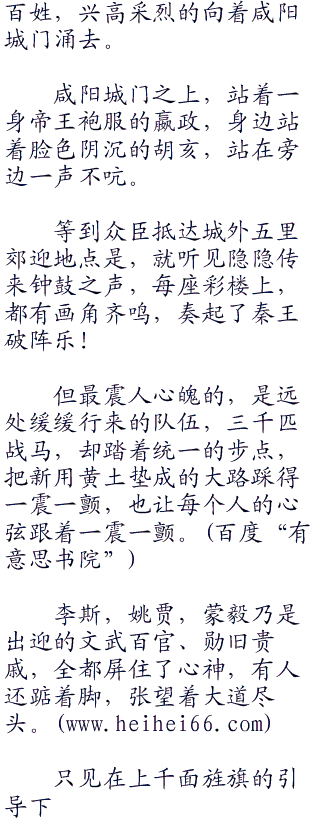 百姓，兴高采烈的向着咸阳
城门涌去。
咸阳城门之上，站着一
身帝王袍服的嬴政，身边站
着脸色阴沉的胡亥，站在旁
边一声不吭。
等到众臣抵达城外五里
郊迎地点是，就听见隐隐传
来钟鼓之声，每座彩楼上，
都有画角齐鸣，奏起了秦王
破阵乐！
但最震人心魄的，是远
处缓缓行来的队伍，三千匹
战马，却踏着统一的步点，
把新用黄土垫成的大路踩得
一震一颤，也让每个人的心
弦跟着一震一颤。(百度“有
意思书院”)
李斯，姚贾，蒙毅乃是
出迎的文武百官、勋旧贵
戚，全都屏住了心神，有人
还踮着脚，张望着大道尽
头。(www.heihei66.com)
只见在上千面旌旗的引
导下